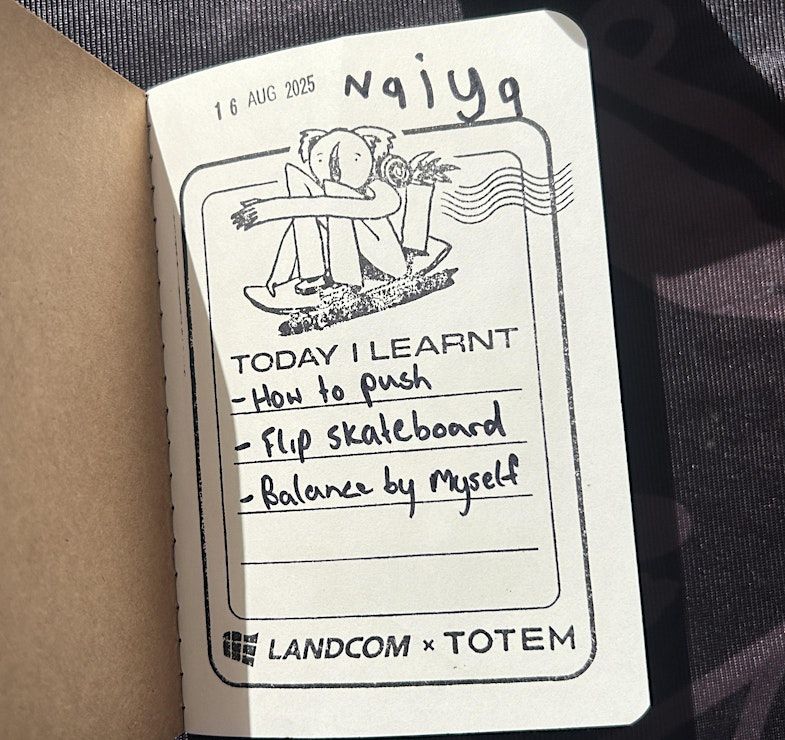 16 AUG 2025 Naiya
TODAY I LEARNT
- How to push
- Flip skateboard
- Balance by Myself
LANDCOM x TOTEM